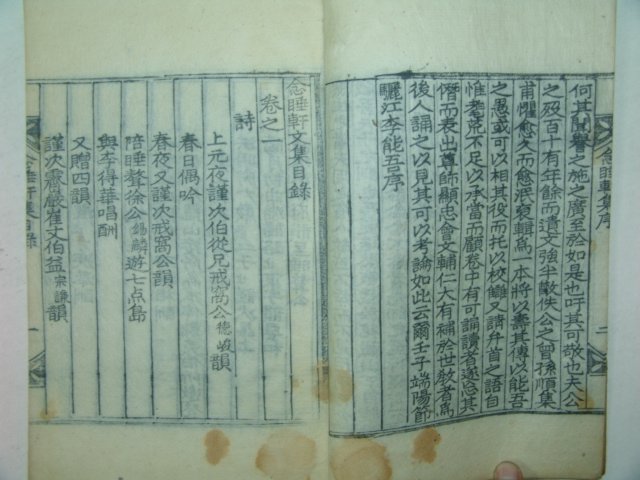 何其聞譽之施之廣至於如是也吁其可敬也夫公
之歿百十有年餘而遺文強半散佚公之曾孫順集
甫懼愈久而愈泯裒輯爲一本將以壽其傳以能吾
之愚或可以相其役而托以校讎又請弁首之語自
惟耄荒不足以承當而顧卷中有可誦讀者遂忘其
僭而表出尊師顯忠會文輔仁大有補於世敎者爲
後人誦之以見其可以考論如此云爾壬子端陽節
驪江李能吾序
念睡軒集序
念睡軒文集目錄
卷之一
詩
上元夜謹次伯從兄戒窩公德峻韻
春日偶吟
春夜又謹次戒窩公韻
陪睡聱徐公錫麟遊七点島
與李得華唱酬
又贈四韻
謹次齋嚴崔丈伯益宗謙韻
念睡軒集目錄
一